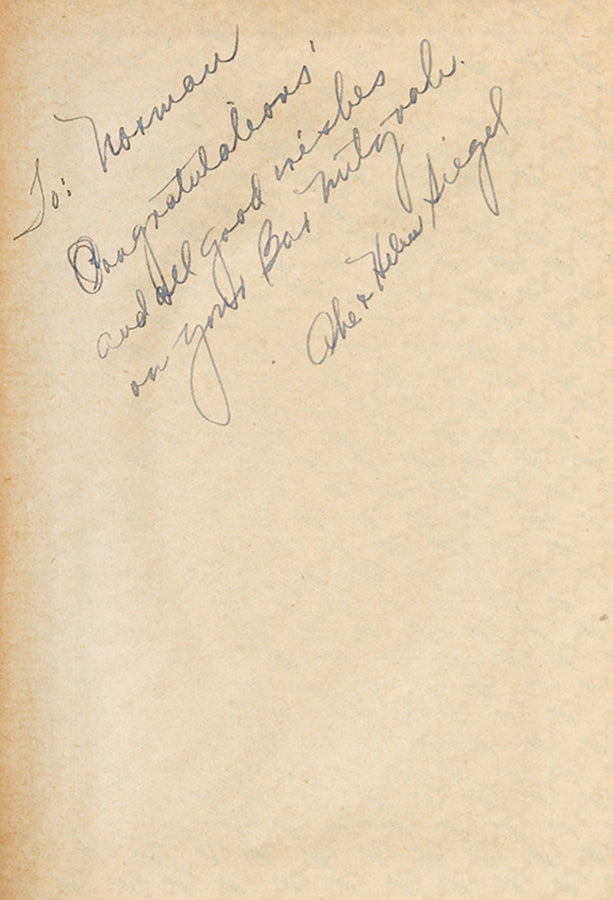 To: Norman
Congratulations!
and all good wishes
on your Bar Mitzvah.
Abe & Helen Siegel